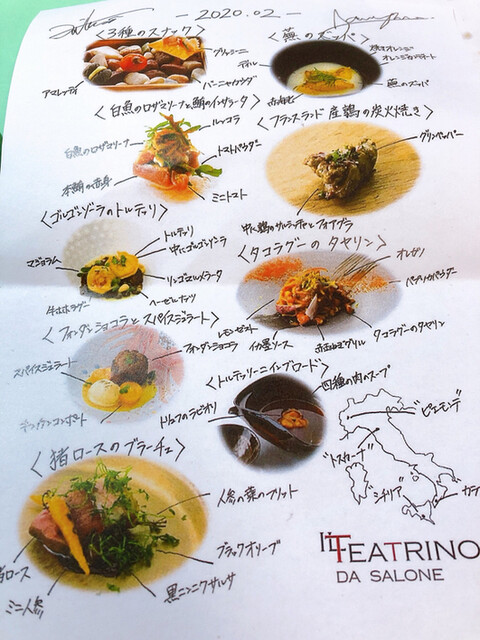 -2020.02-
<3種のスナック>
グリッシーニ
アマレッティ
バーニャカウダ
<蕪のズッパ>
ディル
蕪のズッパ
<白魚のロザマリーナと鮪のインサラータ>
ルッコラ
白魚のロザマリーナ
トマトパウダー
本鮪の赤身
ミニトマト
<フランスランド産鶉の炭火焼き>
グリーンペッパー
<ゴルゴンゾーラのトルテッリ>
トルテッリ
中にゴルゴンゾーラ
マジョラム
リンゴマルメラータ
ヘーゼルナッツ
牛ホホラグー
<タコラグーのタヤリン>
オレガノ
パプリカパウダー
レモンゼスト
イカ墨ソース
赤玉ねぎグリル
タコラグーのタヤリン
<フォンダンショコラとスパイスジェラート>
スパイスジェラート
フォンダンショコラ
<トルテッリーニインブロード>
四種の肉のスープ
トリュフのラビオリ
<猪ロースのブラーチェ>
人参の葉のフリット
ブラックオリーブ
猪ロース
ミニ人参
黒ニンニクサルサ
ピエモンテ
トスカーナ
シチリア
IL TEATRINO
DA SALONE